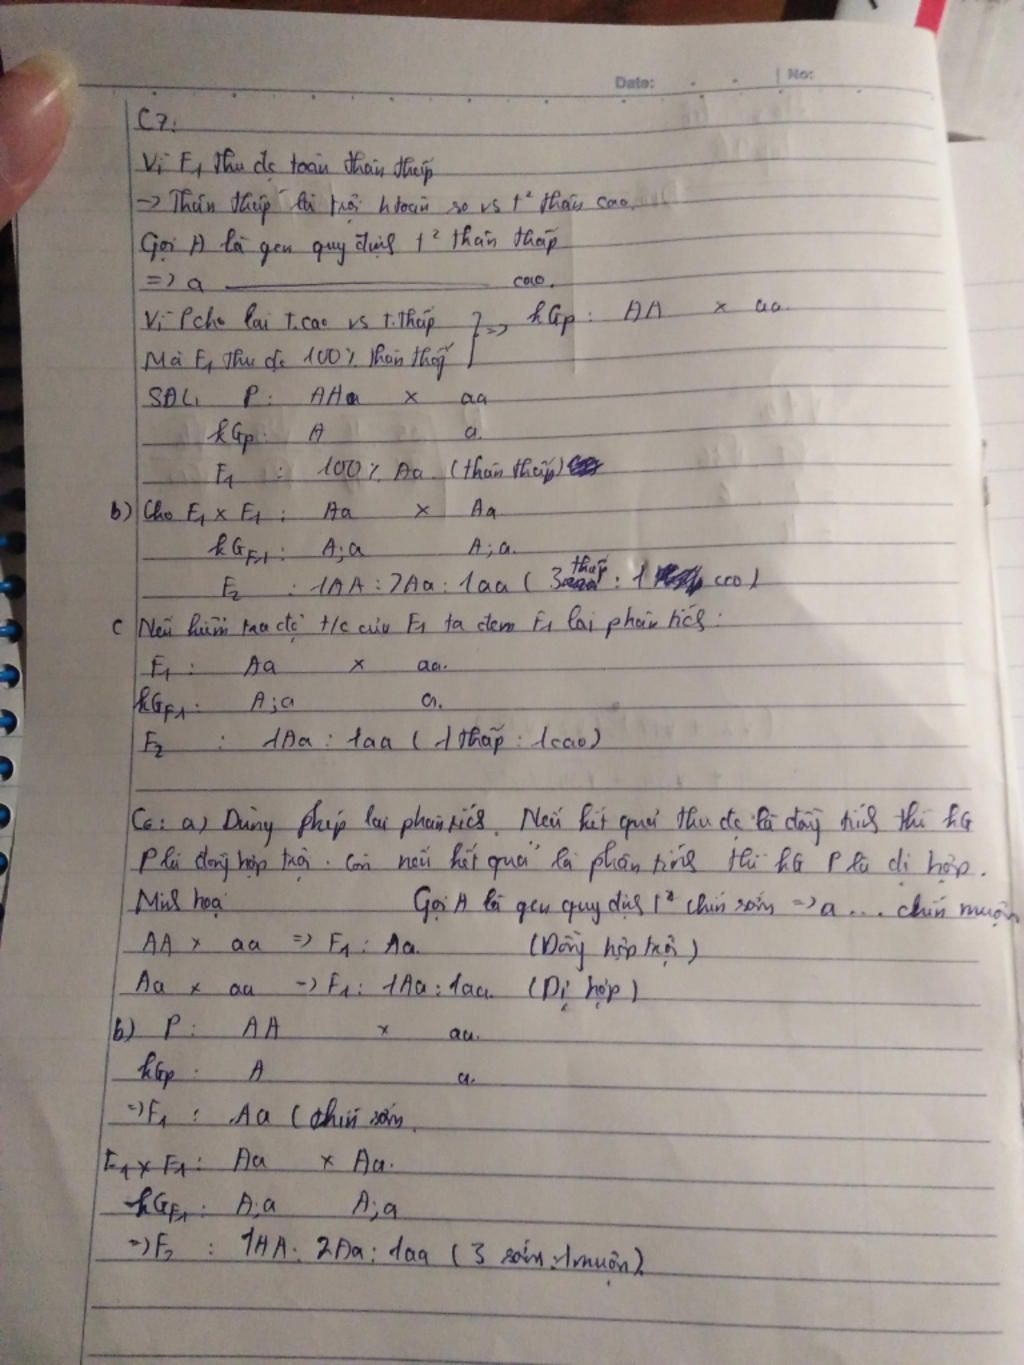 Date: No:
C7:
Vì F1 thu đc toàn thân thấp
=> Thân thấp là trội htoàn so vs t² thân cao.
Gọi A là gen quy định t² thân thấp
=> a ———————— cao.
Vì P cho lai t.cao vs t.thấp => kGp: AA x aa.
Mà F1 thu đc 100% thân thấp
SĐL: P: AA x aa
kGp: A a.
F1 : 100% Aa. (thân thấp)
b) Cho F1 x F1 : Aa x Aa
kGF1: A;a A;a.
F2 : 1AA : 2Aa : 1aa ( 3 thấp : 1 cao)
c Nếu kiểm tra độ t/c của F1 ta đem F1 lai phân tích :
F1 : Aa x aa.
kGF1: A;a a.
F2 : 1Aa : 1aa ( 1 thấp : 1 cao)
C6: a) Dùng phép lai phân tích. Nếu kết quả thu đc là đồng tính thì kG
P là đồng hợp trội. Còn nếu kết quả là phân tính thì kG P là dị hợp.
Minh hoạ Gọi A là gen quy định t² chín sớm => a ... chín muộn
AA x aa => F1 : Aa. (Đồng hợp trội)
Aa x aa => F1 : 1Aa : 1aa. (Dị hợp)
b) P : AA x aa.
kGp : A a.
=> F1 : Aa ( chín sớm.
F1 x F1 : Aa x Aa.
kGF1 : A;a A;a
=> F2 : 1AA : 2Aa : 1aa ( 3 sớm : 1 muộn).